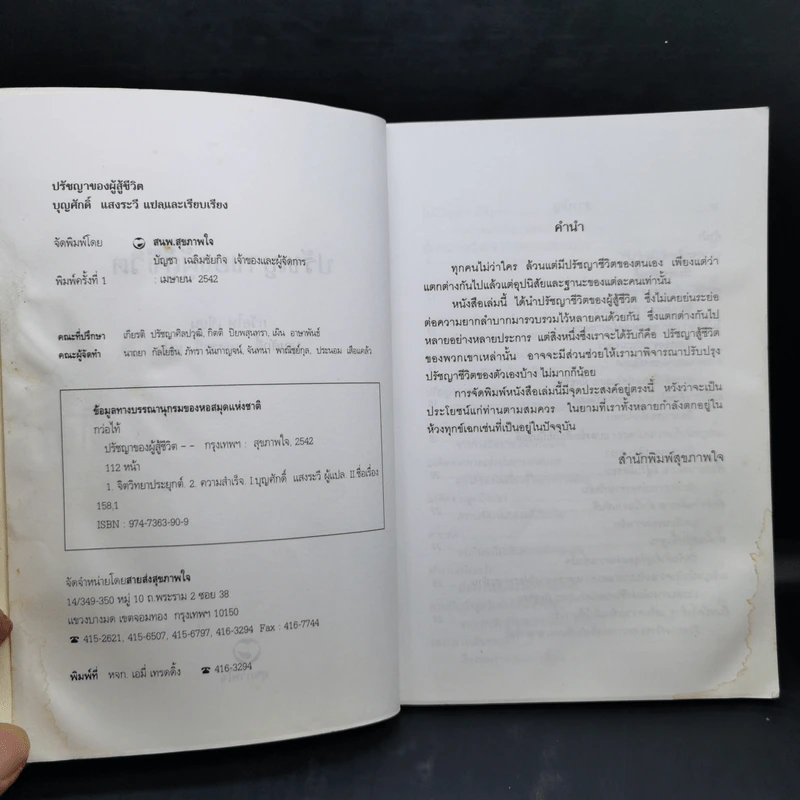 ปรัชญาของผู้สู้ชีวิต
บุญศักดิ์ แสงระวี แปลและเรียบเรียง
จัดพิมพ์โดย สนพ.สุขภาพใจ
บัญชา เฉลิมชัยกิจ เจ้าของและผู้จัดการ
พิมพ์ครั้งที่ 1 : เมษายน 2542
คณะที่ปรึกษา เกียรติ ปรัชญาศิลปวุฒิ, กิตติ ปิยพสุนทรา, เผิน อาษาพันธ์
คณะผู้จัดทำ นาถยา กัลโยธิน, ภัทรา นันกาญจน์, จันทนา พาณิชย์กุล, ประนอม เสือแคล้ว
ข้อมูลทางบรรณานุกรมของหอสมุดแห่งชาติ
กว่อไท้
ปรัชญาของผู้สู้ชีวิต -- กรุงเทพฯ : สุขภาพใจ, 2542
112 หน้า
1. จิตวิทยาประยุกต์. 2. ความสำเร็จ. I.บุญศักดิ์ แสงระวี ผู้แปล. II.ชื่อเรื่อง
158.1
ISBN : 974-7363-90-9
จัดจำหน่ายโดยสายส่งสุขภาพใจ
14/349-350 หมู่ 10 ถ.พระราม 2 ซอย 38
แขวงบางมด เขตจอมทอง กรุงเทพฯ 10150
☎ 415-2621, 415-6507, 415-6797, 416-3294 Fax : 416-7744
พิมพ์ที่ หจก. เอมี่ เทรดดิ้ง ☎ 416-3294
คำนำ
ทุกคนไม่ว่าใคร ล้วนแต่มีปรัชญาชีวิตของตนเอง เพียงแต่ว่า
แตกต่างกันไปแล้วแต่อุปนิสัยและฐานะของแต่ละคนเท่านั้น
หนังสือเล่มนี้ ได้นำปรัชญาชีวิตของผู้สู้ชีวิต ซึ่งไม่เคยย่นระย่อ
ต่อความยากลำบากมารวบรวมไว้หลายคนด้วยกัน ซึ่งแตกต่างกันไป
หลายอย่างหลายประการ แต่สิ่งหนึ่งซึ่งเราจะได้รับก็คือ ปรัชญาสู้ชีวิต
ของพวกเขาเหล่านั้น อาจจะมีส่วนช่วยให้เรามาพิจารณาปรับปรุง
ปรัชญาชีวิตของตัวเองบ้าง ไม่มากก็น้อย
การจัดพิมพ์หนังสือเล่มนี้มีจุดประสงค์อยู่ตรงนี้ หวังว่าจะเป็น
ประโยชน์แก่ท่านตามสมควร ในยามที่เราทั้งหลายกำลังตกอยู่ใน
ห้วงทุกข์เฉกเช่นที่เป็นอยู่ในปัจจุบัน
สำนักพิมพ์สุขภาพใจ